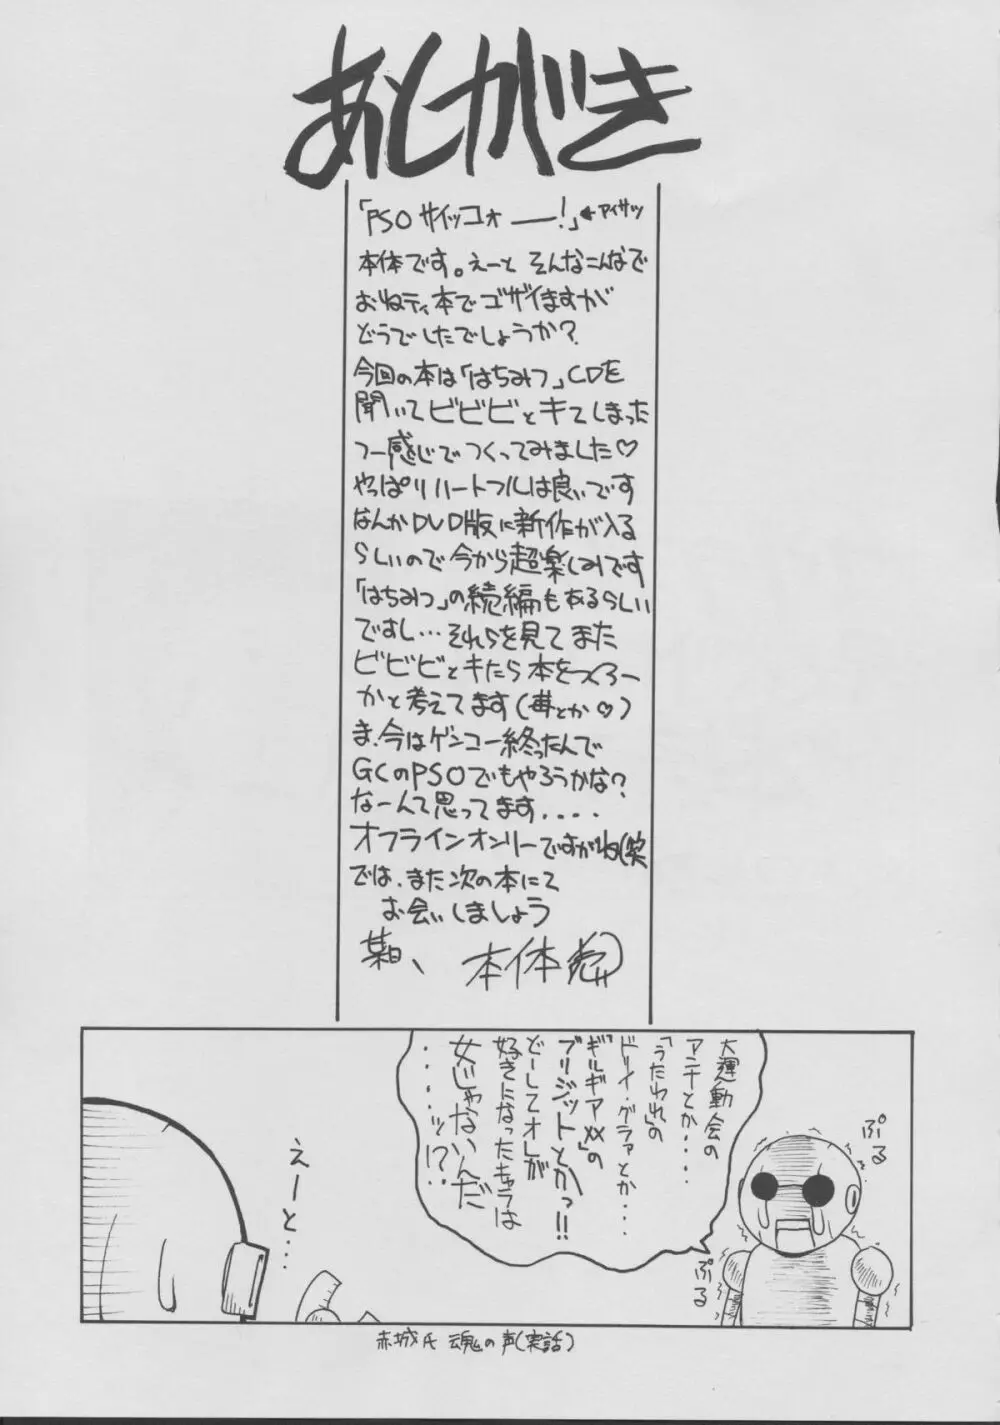 あとがき
「PSO サイッコォ――!」←アイサツ
本体です。えーと そんなこんなで
おねティ本でゴザイますが
どうでしたでしょうか?
今回の本は「はちみつ」CDを
聞いてビビビとキてしまった
つー感じでつくってみました♡
やっぱりハートフルは良いです
なんかDVD版に新作が入る
らしいので今から超楽しみです
「はちみつ」の続編もあるらしい
ですし…それらを見てまた
ビビビとキたら本をつくろー
かと考えてます(苺とか♡)
ま、今はゲンコー終ったんで
GCのPSOでもやろうかな?
なーんて思ってます....
オフラインオンリーですがね(笑
では、また次の本にて
お会いしましょう
某日、 本体
大運動会の
アンナとか・・・・
「うたわれ」の
ドリィ・グラァとか・・・
「ギルギアXX」の
ブリジットとかっ!!
どーしてオレが
好きになったキャラは
女じゃないんだ
・・・・・ッ!?
ぷる
ぷる
えーと…
赤城氏 魂の声(実話)